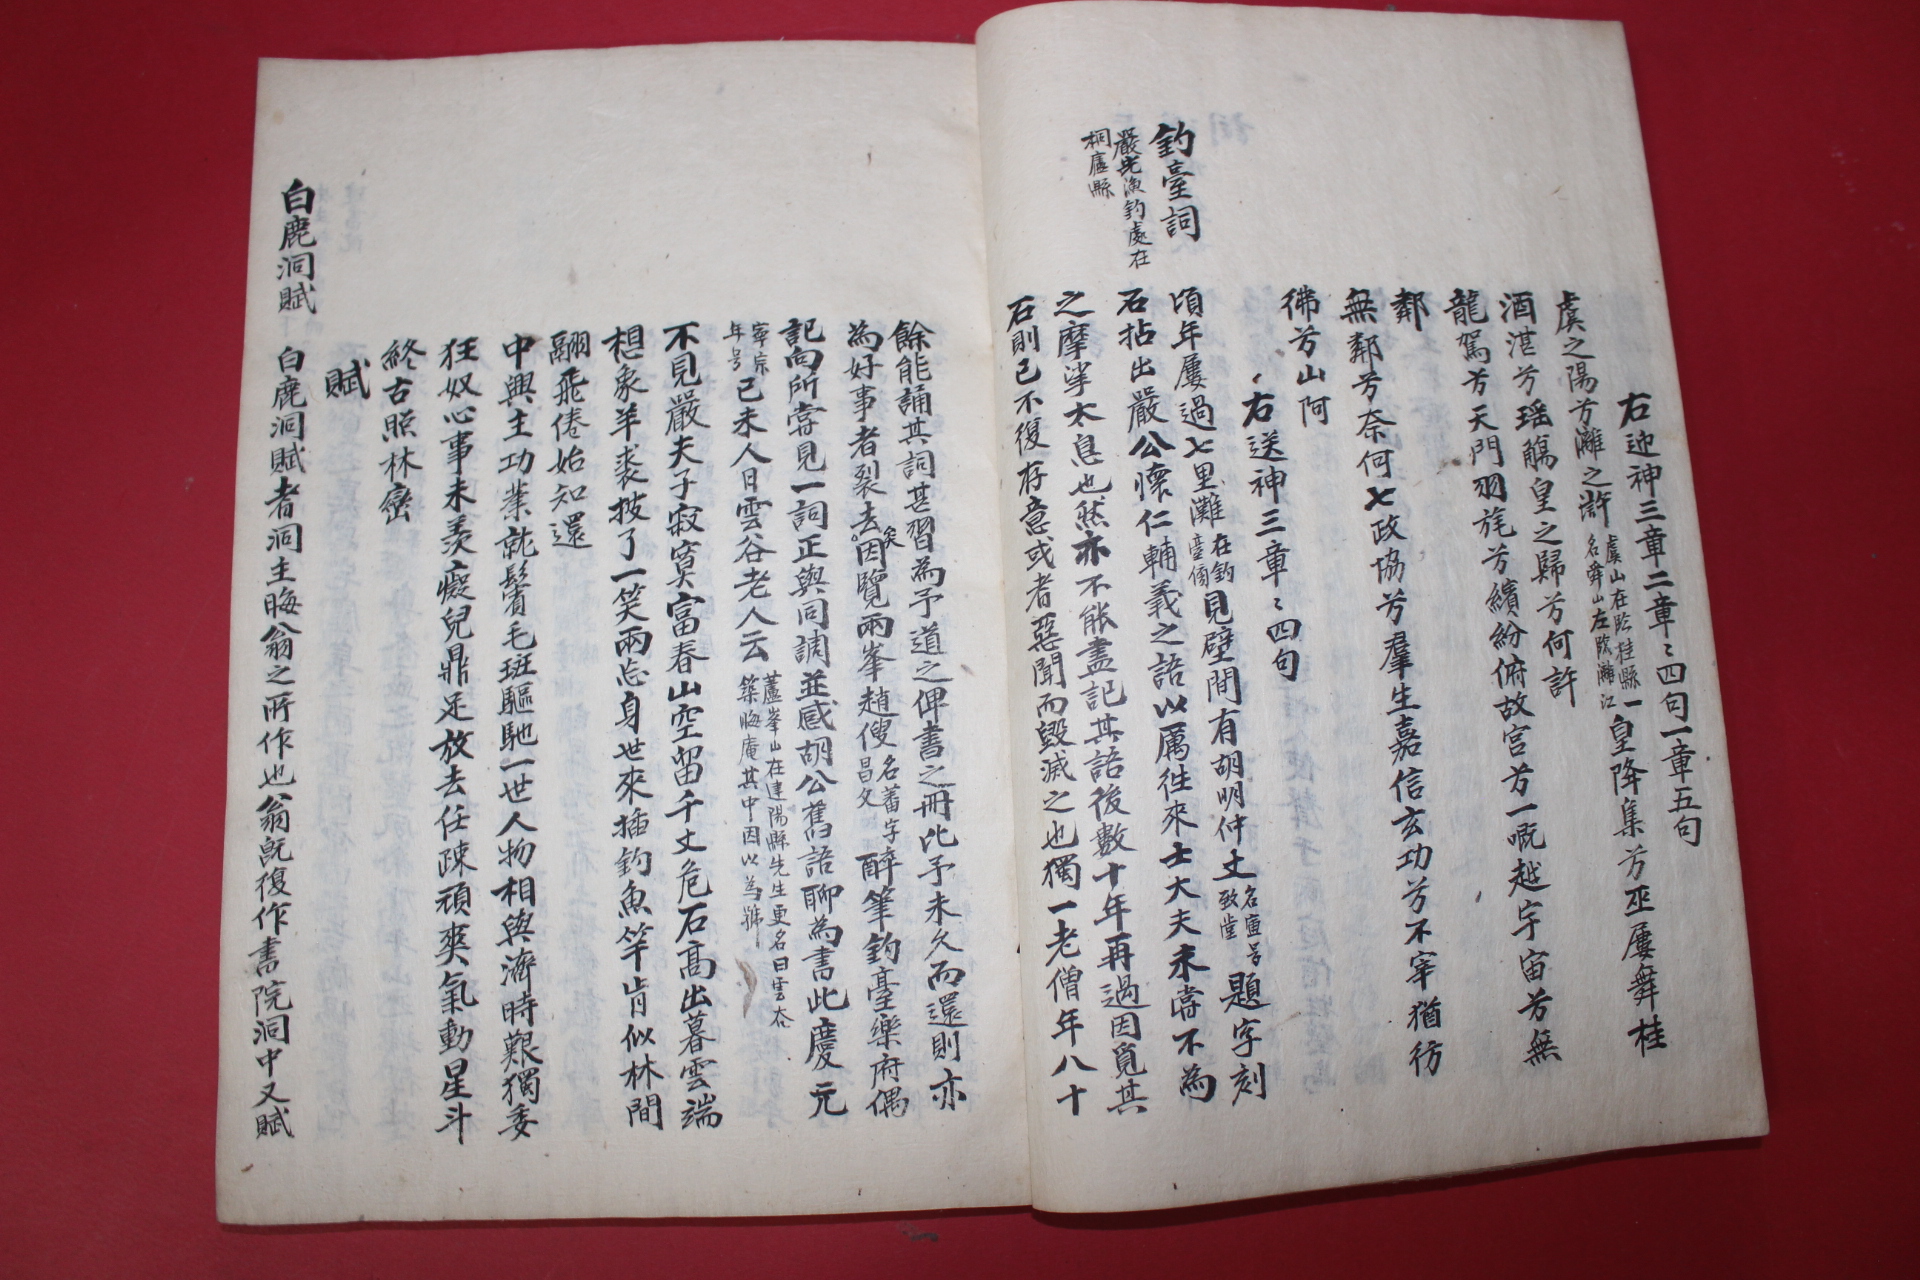 右迎神三章二章〻四句一章五句
皇降集兮巫屢舞桂
虞之陽兮灕之滸
虞山在臨桂縣一
名舜山左臨灕江
酒湛兮瑶觴皇之歸兮何許
龍駕兮天門羽旄兮繽紛俯故宫兮一嘅越宇宙兮無
鄰
無鄰兮奈何七政協兮羣生嘉信玄功兮不宰猶彷
彿兮山阿
右送神三章〻四句
釣臺詞
嚴光漁釣處在
桐廬縣
頃年屢過七里灘
在釣
臺傍
見壁間有胡明仲丈
名寅号
致堂
題字刻
石拈出嚴公懷仁輔義之語以厲徃來士大夫未甞不為
之摩挲太息也然亦不能盡記其語後數十年再過因覓其
石則已不復存意或者惡聞而毀滅之也獨一老僧年八十
餘能誦其詞甚習為予道之俾書之冊比予未久而還則亦
為好事者裂去矣因覽兩峯趙傁
名蕃字
昌父
醉筆釣臺樂府偶
記向所甞見一詞正與同調並感胡公舊語聊為書此慶元
寧宗
年号
己未人日雲谷老人云
蘆峯山在建陽縣先生更名曰雲谷
築晦庵其中因以為號
不見嚴夫子寂寞富春山空留千丈危石高出暮雲端
想象羊裘披了一笑兩忘身世來插釣魚竿肯似林間
翮飛倦始知還
中興主功業就鬢毛斑驅馳一世人物相與濟時艱獨委
狂奴心事未羡癡兒鼎足放去任疎頑爽氣動星斗
終古照林巒
賦
白鹿洞賦
白鹿洞賦者洞主晦翁之所作也翁既復作書院洞中又賦